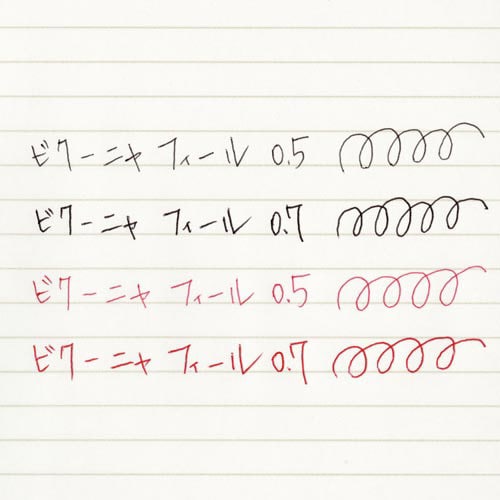 ビクーニャ フィール 0.5
ビクーニャ フィール 0.7
ビクーニャ フィール 0.5
ビクーニャ フィール 0.7